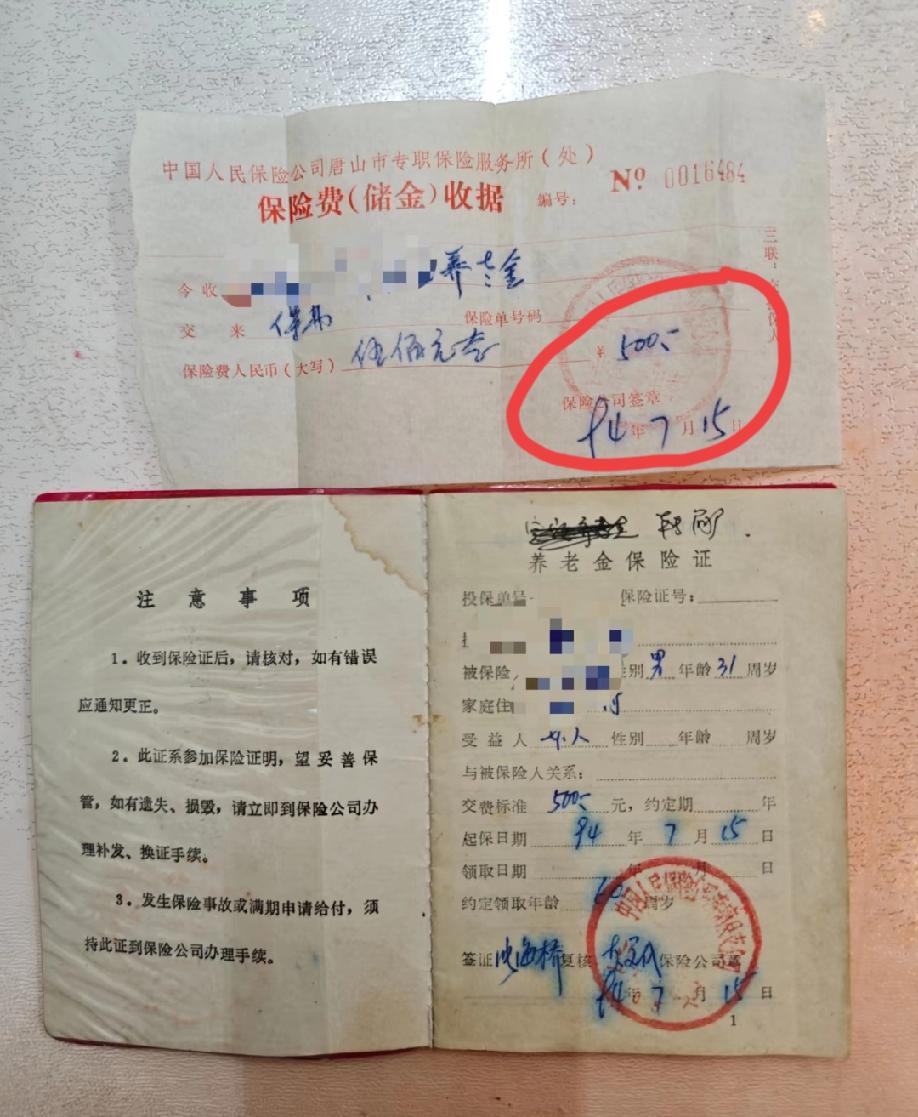 中国人民保险公司唐山市专职保险服务所（处）
保险费(储金)收据 编号： Nº 0016484
今收 养老金
交来 保险单号码
保险费人民币（大写）伍佰元 ¥ 500.-
保险公司签章
94年7月15日
三联：
注意事项
1．收到保险证后，请核对，如有错误
应通知更正。
2．此证系参加保险证明，望妥善保
管，如有遗失、损毁，请立即到保险公司办
理补发、换证手续。
3．发生保险事故或满期申请给付，须
持此证到保险公司办理手续。
养老金保险证
投保单号 保险证号：
被保险 性别 男 年龄 31 周岁
家庭住
受益人 本人 性别 年龄 周岁
与被保险人关系：
交费标准 500.- 元，约定期 年
起保日期 94 年 7 月 15 日
领取日期 年 月 日
约定领取年龄 60 周岁
签证 复核 保险公司章
94年 7 月 15 日
1